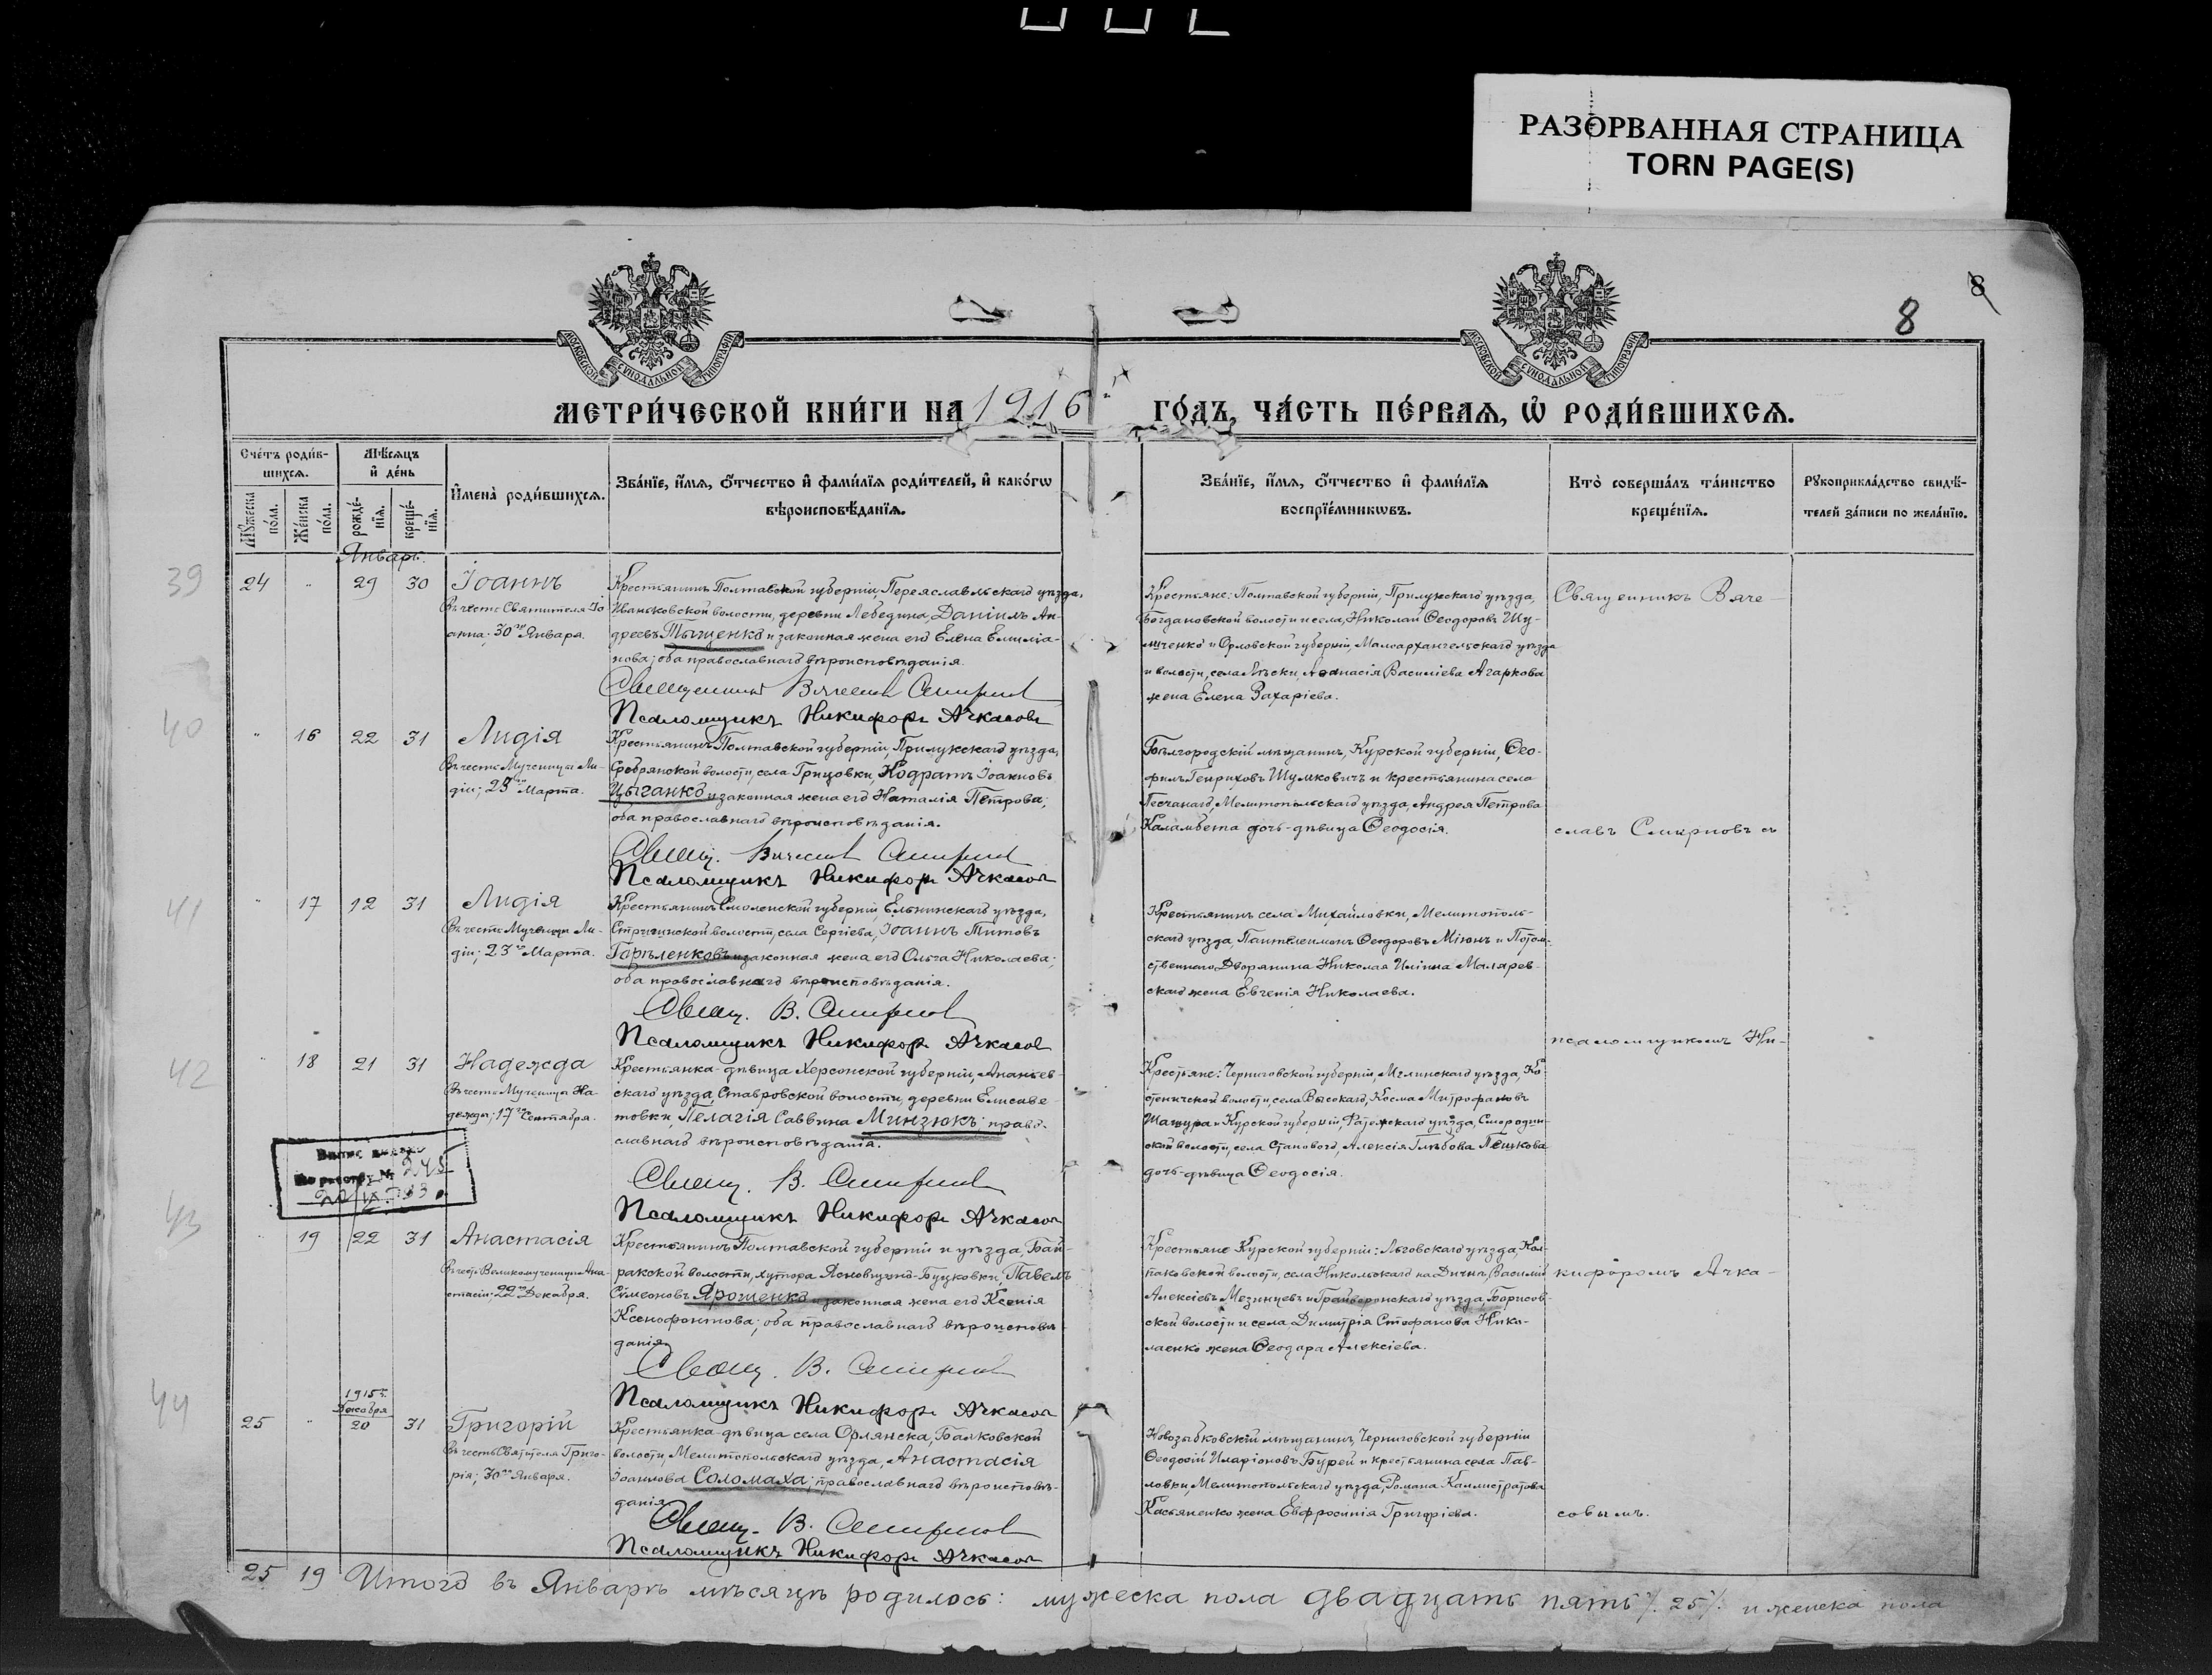 РАЗОРВАННАЯ СТРАНИЦА
TORN PAGE(S)
8
8
МОСКОВСКОЙ СУНОДАЛЬНОЙ ТИПОГРАФІИ
МОСКОВСКОЙ СУНОДАЛЬНОЙ ТИПОГРАФІИ
МЕТРИ́ЧЕСКОЙ КНИ́ГИ НА 1916 ГО́ДЪ, ЧА́СТЬ ПЕ́РВАЯ, Ѡ РОДИ́ВШИХСЯ.
Сче́тъ роди́в-
шихся.
Мѣ́сяцъ
и҆ де́нь
Мꙋ́жеска по́ла.
Же́нска по́ла.
рожде́-
нїя.
креще́-
нїя.
И҆мена̀ роди́вшихся.
Зва́нїе, и҆́мя, ѻ҆́тчество и҆ фами́лїя роди́телей, и҆ како́гѡ
вѣроисповѣ́данїя.
Зва́нїе, и҆́мя, ѻ҆́тчество и҆ фами́лїя
воспрїе́мникѡвъ.
Кто̀ соверша́лъ та́инство
креще́нїя.
Рꙋкоприкла́дство свидѣ́-
телей за́писи по жела́нїю.
Январь.
39
24 " 29 30 Іоаннъ
Въ честь Святителя Іо
анна; 30го Января.
Крестьянинъ Полтавской губерніи, Переяславльскаго уѣзда,
Иваньковской волости, деревни Лебедина, Даніилъ Ан-
дреевъ Тыщенко и законная жена его Елена Емиліа-
нова; оба православнаго вѣроисповѣданія.
Священникъ Вячеслав Смирнов
Псаломщикъ Никифоръ Ачкасовъ
Крестьяне: Полтавской губерніи, Прилукскаго уѣзда,
Богдановской волости и села, Николай Ѳеодоровъ Шу-
мченко и Орловской губерніи, Малоархангельскаго уѣзда
и волости, села Лѣски, Аѳанасія Василіева Агаркова
жена Елена Захаріева.
Священникъ Вяче-
40
" 16 22 31 Лидія
Въ честь Мученицы Ли-
діи; 23го Марта.
Крестьянинъ Полтавской губерніи, Прилукскаго уѣзда,
Сребрянской волости, села Грицовки, Кодратъ Іоанновъ
Цыганко и законная жена его Наталія Петрова;
оба православнаго вѣроисповѣданія.
Свящ. Вячеслав Смирнов
Псаломщикъ Никифоръ Ачкасов
Бѣлгородскій мѣщанинъ, Курской губерніи, Ѳео-
филъ Генриховъ Шумковичъ и крестьянина села
Песчанаго, Мелитопольскаго уѣзда, Андрея Петрова
Каламбета дочь-дѣвица Ѳеодосія.
славъ Смирновъ съ
41
" 17 12 31 Лидія
Въ честь Мученицы Ли-
діи; 23го Марта.
Крестьянинъ Смоленской губерніи, Ельнинскаго уѣзда,
Стригинской волости, села Сергіева, Іоаннъ Титовъ
Горѣленковъ и законная жена его Ольга Николаева;
оба православнаго вѣроисповѣданія.
Свящ. В. Смирнов
Псаломщикъ Никифоръ Ачкасов
Крестьянинъ села Михайловки, Мелитополь-
скаго уѣзда, Пантелеимонъ Ѳеодоровъ Міюнъ и Потом-
ственнаго Дворянина Николая Иліина Маляров-
скаго жена Евгенія Николаева.
псаломщикомъ Ни-
42
" 18 21 31 Надежда
Въ честь Мученицы На-
дежды; 17го Сентября.
Крестьянка-дѣвица Херсонской губерніи, Ананьев-
скаго уѣзда, Ставровской волости, деревни Елисаве-
товки, Пелагія Саввина Минзюкъ; право-
славнаго вѣроисповѣданія.
Свящ. В. Смирнов
Псаломщикъ Никифоръ Ачкасов
Крестьяне: Черниговской губерніи, Мглинскаго уѣзда, Ко-
стеничской волости, села Высокаго, Косма Митрофановъ
Шашура и Курской губерніи, Фатежскаго уѣзда, Смородин-
ской волости, села Становаго, Алексія Глѣбова Пешкова
дочь-дѣвица Ѳеодосія.
по реестру № 245
43
" 19 22 31 Анастасія
Въ честь Великомученицы Ана-
стасіи; 22го Декабря.
Крестьянинъ Полтавской губерніи и уѣзда, Бай-
ракской волости, хутора Ясновщино-Буцковки, Павелъ
Сѵмеоновъ Ярошенко и законная жена его Ксенія
Ксенофонтова; оба православнаго вѣроисповѣ-
данія
Свящ. В. Смирнов
Псаломщикъ Никифоръ Ачкасов
Крестьяне Курской губерніи: Льговскаго уѣзда, Кол-
паковской волости, села Никольскаго на Дичнѣ, Василій
Алексіевъ Мезинцевъ и Грайворонскаго уѣзда, Борисов-
ской волости и села Димитрія Стефанова Нико-
лаенко жена Ѳеодора Алексіева.
кифоромъ Ачка-
44
1915 г.
Декабря
25 " 20 31 Григорій
Въ честь Святителя Григо-
рія; 30го Января.
Крестьянка-дѣвица села Орлянска, Балковской
волости, Мелитопольскаго уѣзда, Анастасія
Іоаннова Соломаха; православнаго вѣроисповѣ-
данія
Свящ. В. Смирнов
Псаломщикъ Никифоръ Ачкасов
Новозыбковскій мѣщанинъ, Черниговской губерніи
Ѳеодосій Иларіоновъ Бурей и крестьянина села Пав-
ловки, Мелитопольскаго уѣзда, Романа Каллистратова
Касьяненко жена Евфросинія Григоріева.
совымъ.
25 19 Итого въ Январѣ мѣсяцѣ родилось: мужеска пола двадцать пять /. 25 /. и женска пола